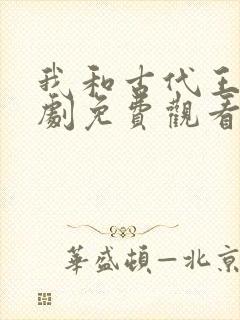 我和古代王
劇免費觀看
華盛頓—北京